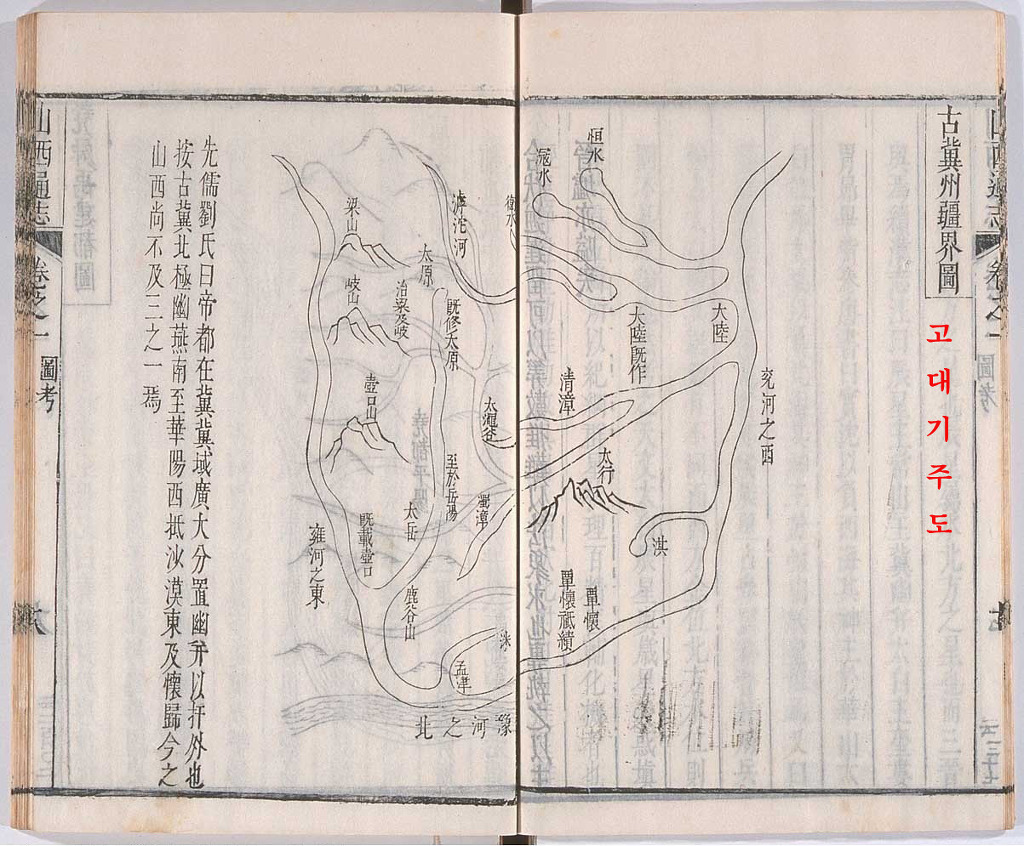 古冀州疆界圖
고대기주도
山西通志
卷之一
圖考
兗河之西
大陸
大陸既作
恒水
滱水
衛水
滹沱河
清漳
太行
淇
覃懷
覃懷厎績
濁漳
至於岳陽
既修太原
太原
治梁及岐
梁山
岐山
壺口山
既載壺口
太岳
鹿谷山
孟津
雍河之東
豫河之北
先儒劉氏曰帝都在冀冀域廣大分置幽并以扞外也
按古冀北極幽燕南至華陽西抵沙漠東及懷歸今之
山西尚不及三之一焉
山西通志
卷之一
圖考